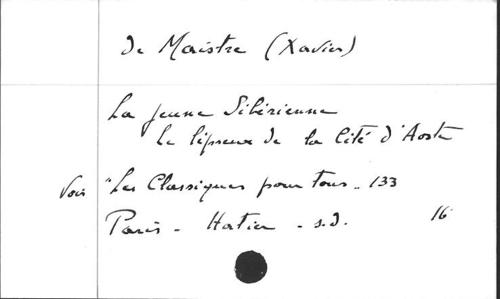 de Maistre (Xavier)
La jeune Sibérienne
Le lépreux de la Cité d'Aoste
Voir "Les Classiques pour tous - 133
Paris - Hatier - s.d. 16